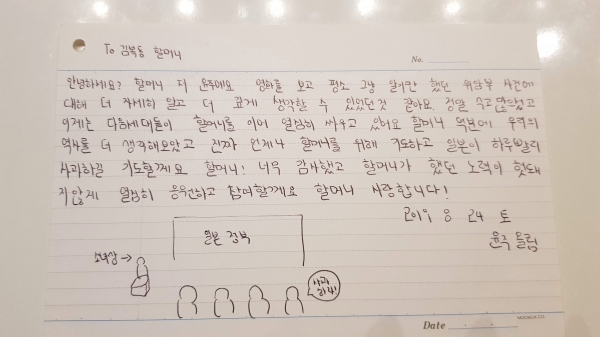 To 김복동 할머니
No.
안녕하세요? 할머니 저 윤주에요 영화를 보고 평소 그냥 알기만 했던 위안부 사건에
대해 더 자세히 알고 더 깊게 생각할 수 있었던것 같아요 정말 수고많으셨고
이제는 다음세대들이 할머니를 이어 열심히 싸우고 있어요 할머니 덕분에 우리의
역사를 더 생각해보았고 진짜 언제나 할머니를 위해 기도하고 일본이 하루빨리
사과하길 기도할께요 할머니! 너무 감사했고 할머니가 했던 노력이 헛되
지않게 열심히 응원하고 참여할께요 할머니 사랑합니다!
2019 8 24 토
윤주 올림
일본 정부
소녀상→
사과하라!
Date